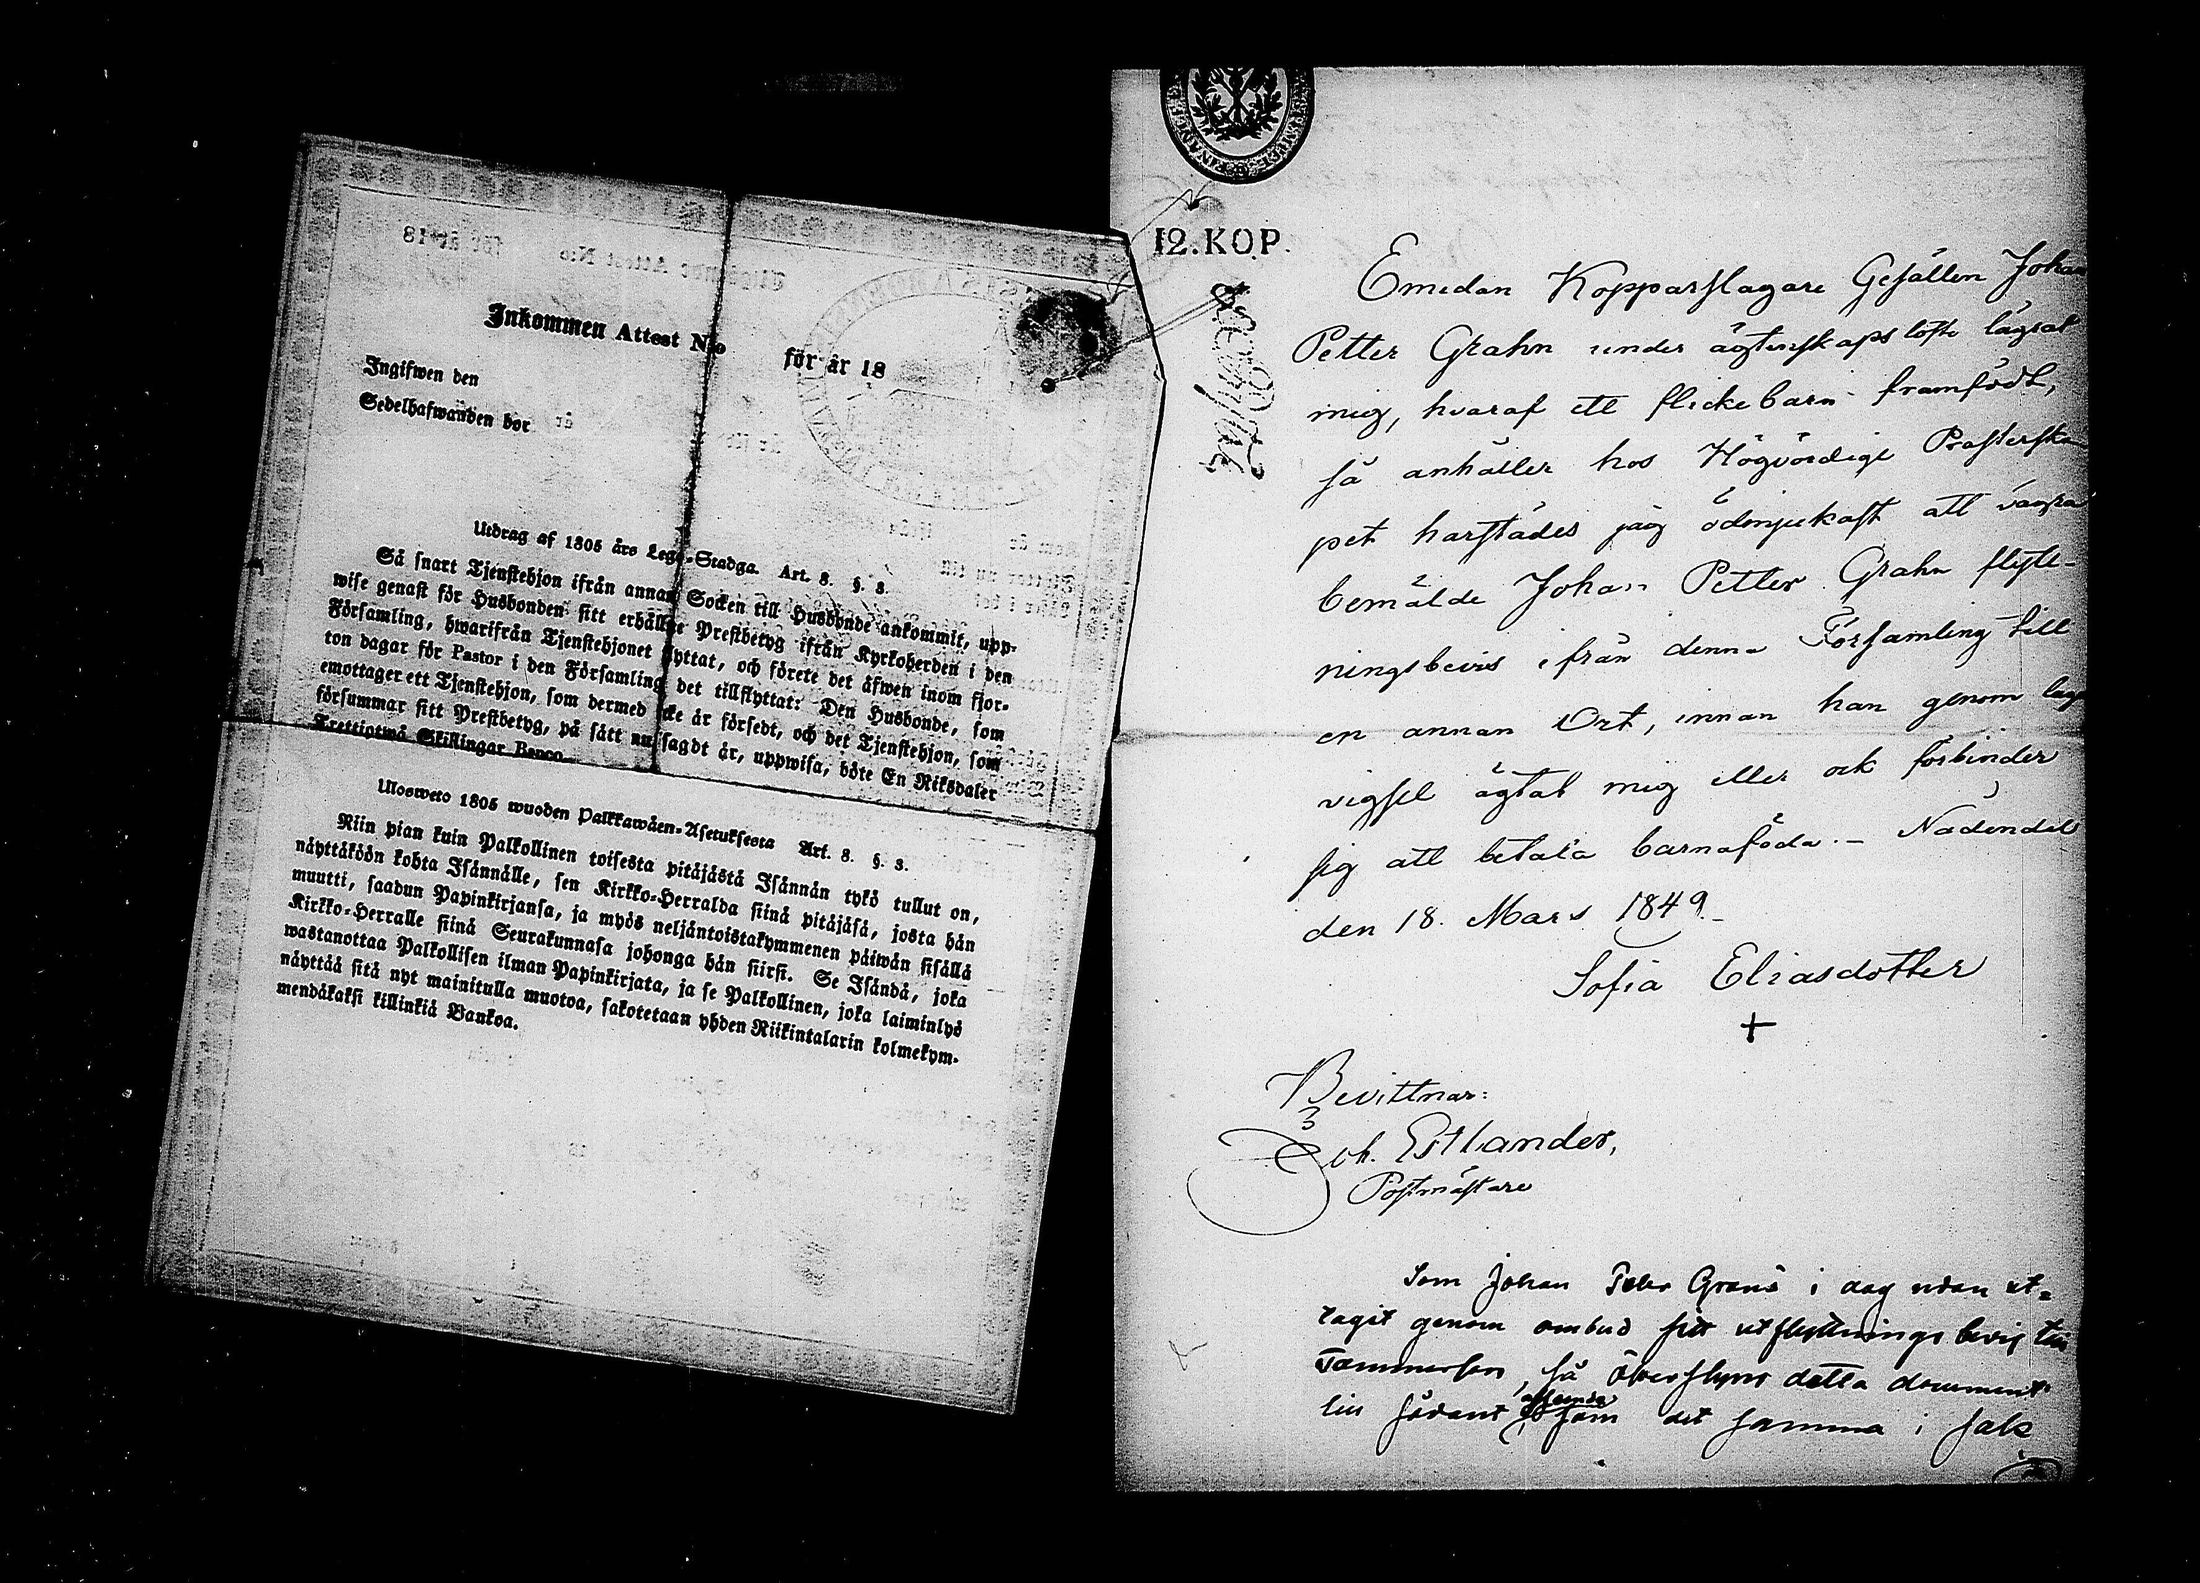 Inkommen Attest No för år 18
Ingifwen den
Sedelhafwanden bor
Utdrag af 1805 års Lego-Stadga. Art. 8. §. 3.
Så snart Tjenstehjon ifrån annan Socken till Husbonde ankommit, upp-
wise genast för Husbonden sitt erhållne Prestbetyg ifrån Kyrkoherden i den
Församling, hwarifrån Tjenstehjonet flyttat, och förete det äfwen inom fjor-
ton dagar för Pastor i den Församling det tillflyttat: Den Husbonde, som
emottager ett Tjenstehjon, som dermed icke är försedt, och det Tjenstehjon, som
försummar sitt Prestbetyg, på sätt nu sagdt är, uppwisa, böte En Riksdaler
Trettiotwå Skillingar Banco.
Ulosweto 1805 wuoden Palkkawäen-Asetuksesta Art. 8. §. 3.
Niin pian kuin Palkollinen toisesta pitäjästä Isännän tykö tullut on,
näyttäköön kohta Isännälle, sen Kirkko-Herralda siinä pitäjäsä, josta hän
muutti, saadun Papinkirjansa, ja myös neljäntoistakymmenen päiwän sisällä
Kirkko-Herralle siinä Seurakunnasa johonga hän siirsi. Se Isändä, joka
wastanottaa Palkollisen ilman Papinkirjata, ja se Palkollinen, joka laiminlyö
näyttää sitä nyt mainitulla muotoa, sakotetaan yhden Riikintalarin kolmekym-
mendäkaksi killinkiä Bankoa.
12. KOP.
Emedan Kopparslagare Gesällen Johan
Petter Grahn under ägtenskaps löfte lägrat
mig, hvaraf ett flickebarn framfödt,
så anhåller hos Högvördige Prästerska
pet härstädes jag ödmjukast att vägra
bemälde Johan Petter Grahn flytt-
ningsbevis ifrån denna Församling till
en annan Ort, innan han genom laga
vigsel ägtat mig eller ock förbinder
sig att betala barnaföda.- Nådendal
den 18. Mars 1849
Sofia Eliasdotter
+
Bevittnar:
Joh. Estlander,
Postmästare
Som Johan Peter Grans i dag redan ut-
tagit genom ombud sitt utflyttnings bevis till
Tammerfors, så öfverflyttas detta document
till sådant afseende som det samma i sak